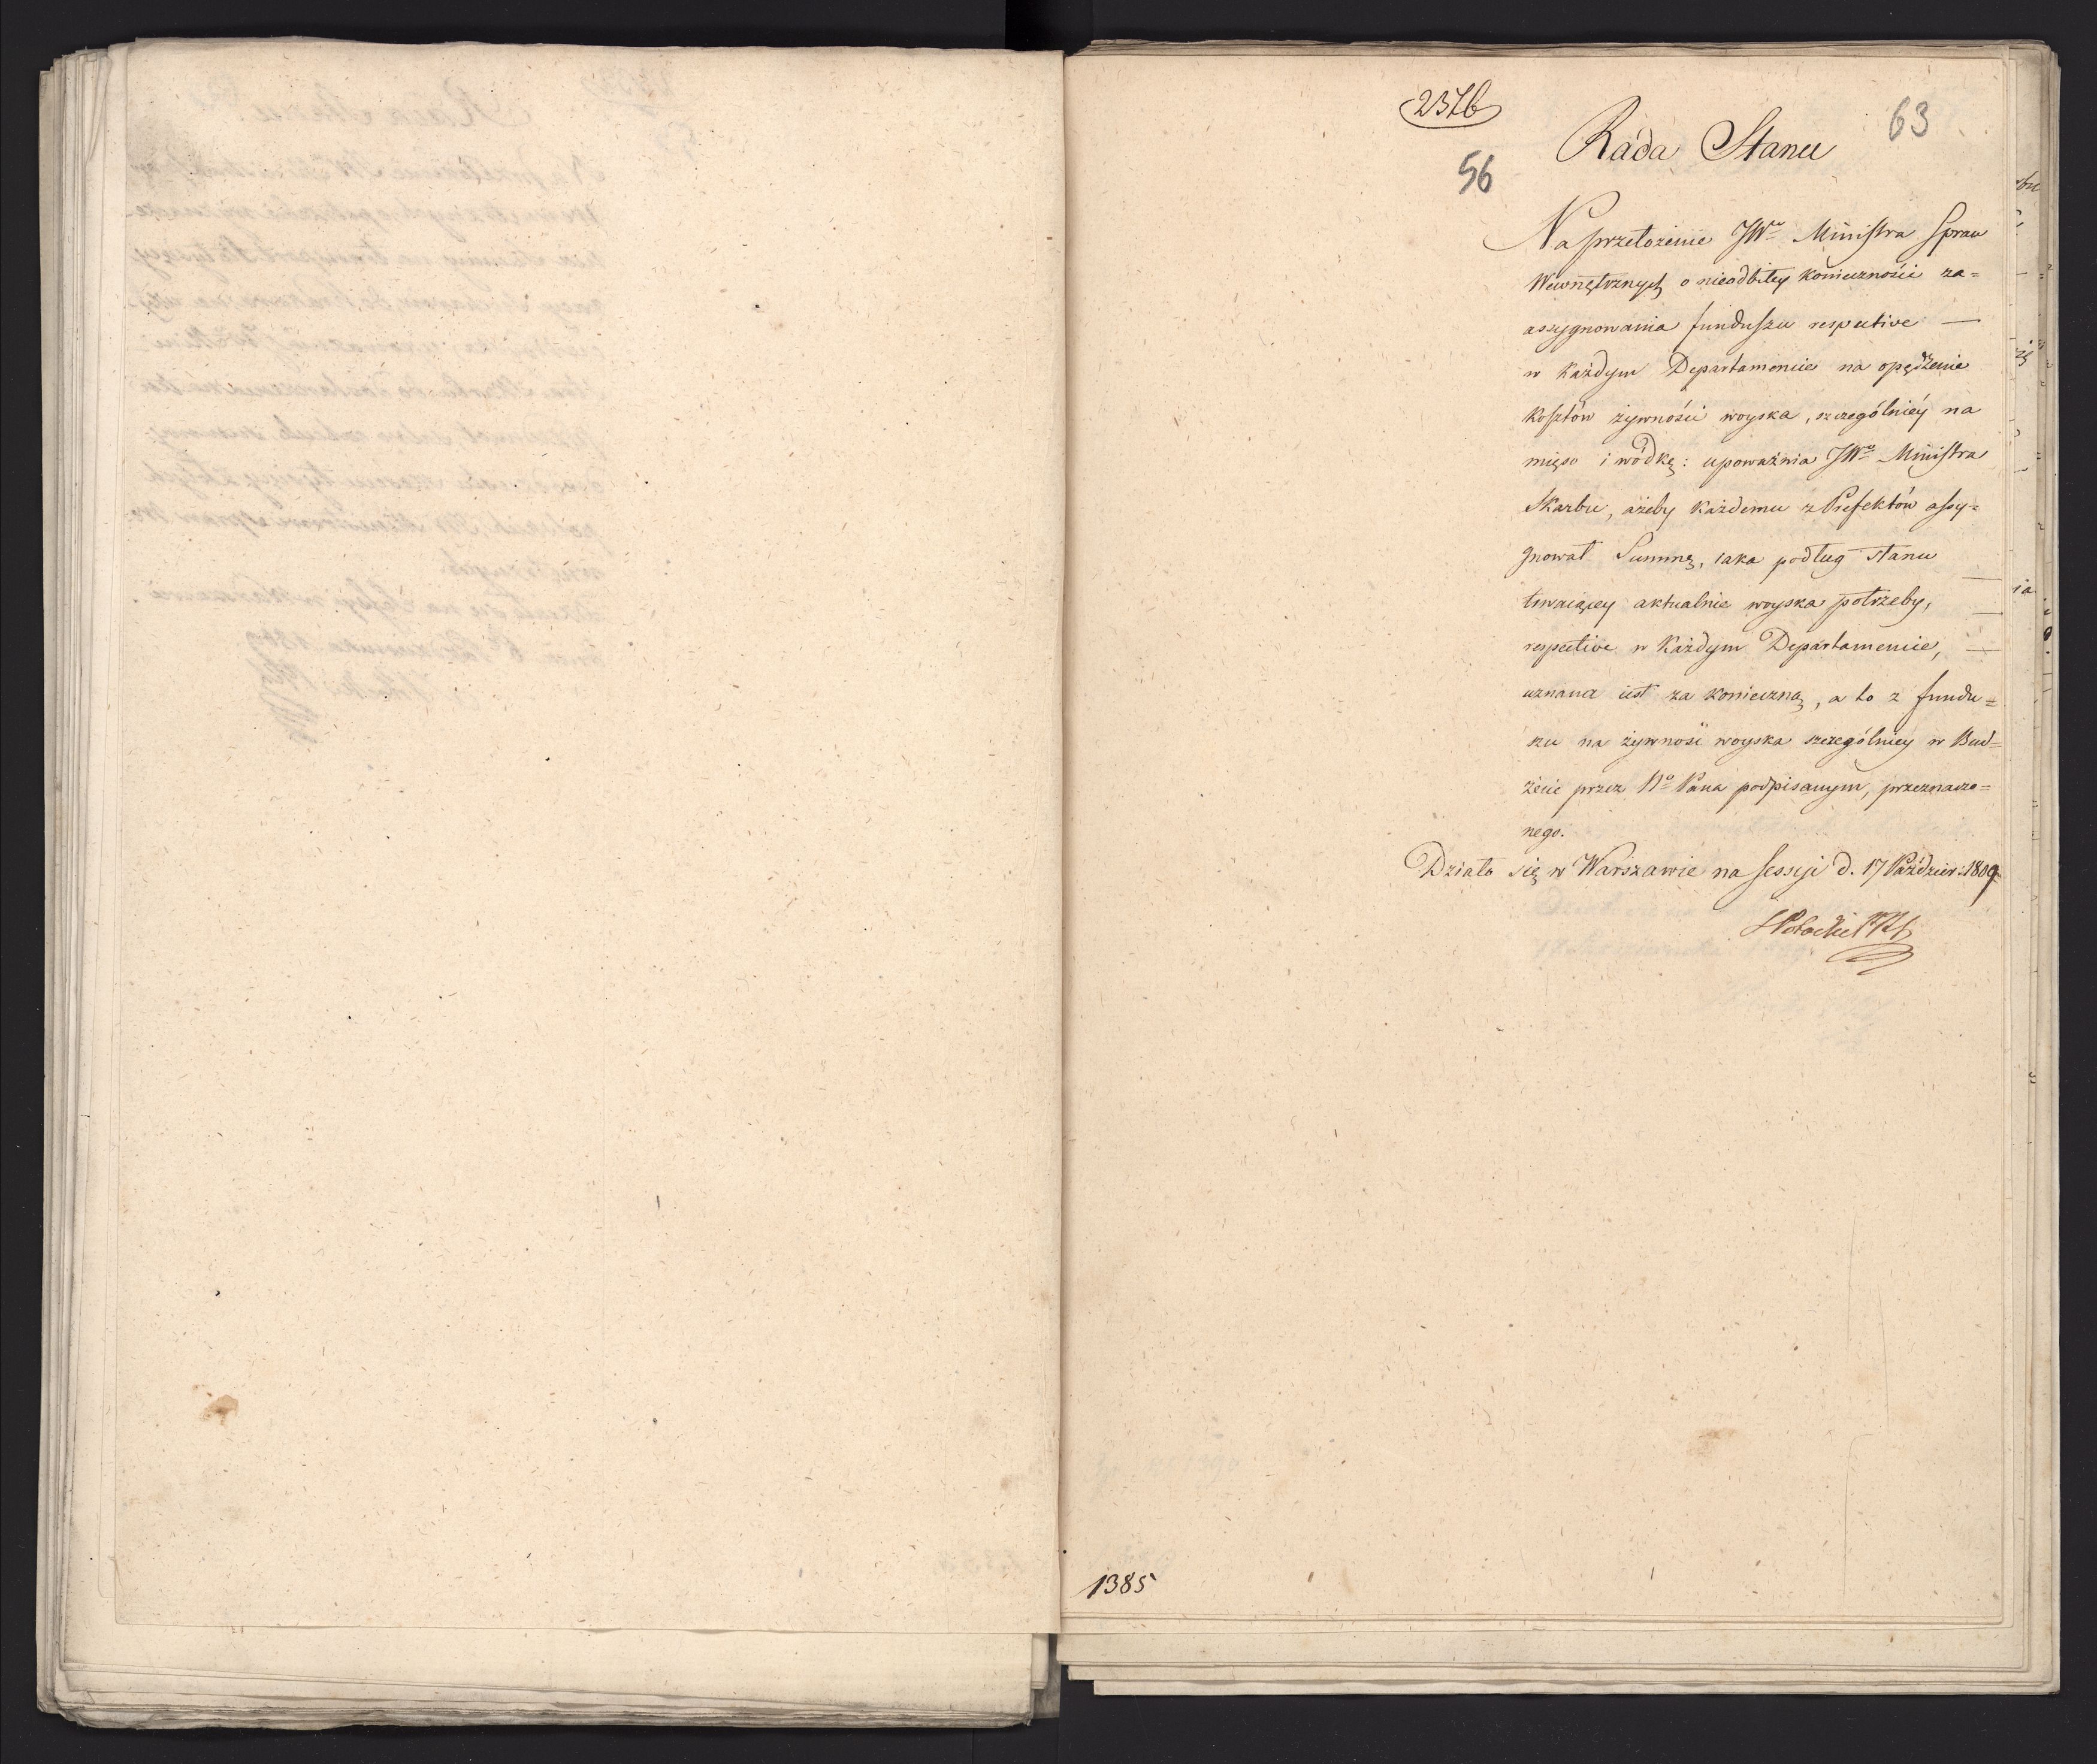 237b
63
56
Rada Stanu
Na przełożenie JWo Ministra Spraw
Wewnętrznych o nieodbitey konieczności za=
assygnowania funduszu respective —
w każdym Departamencie na opędzenie
kosztów żywności woyska, szczególniéy na
mięso i wódkę: upoważnia JWo Ministra
Skarbu, ażeby każdemu z Prefektów assy=
gnował Summę, iaka podług stanu —
trwaiącey aktualnie woyska potrzeby, —
respective w każdym Departamencie, —
uznana iest za konieczną, a to z fundu=
szu na żywność woyska szczególniey w Bud=
żecie przez No Pana podpisanym, przeznaczo=
nego.
Działo się w Warszawie na sessyi d. 17 Paździer: 1809.
SPotocki
1385